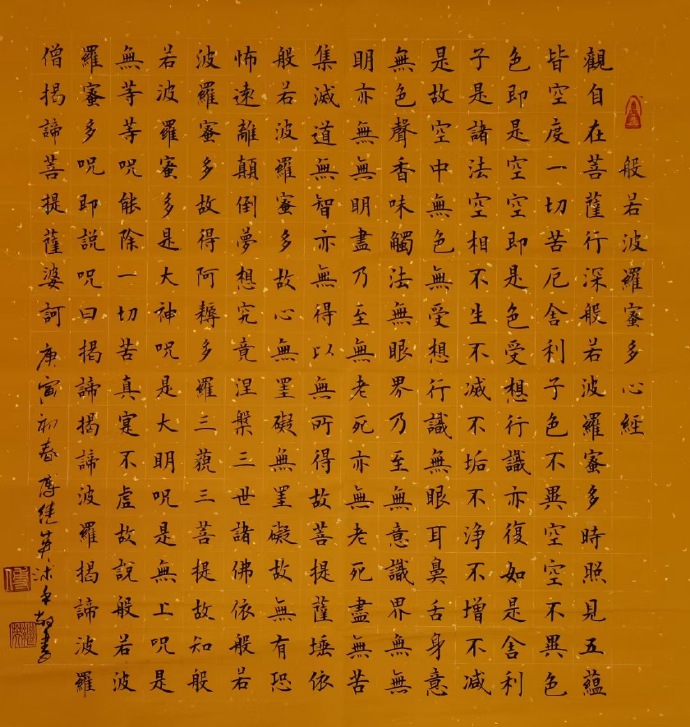 般若波羅蜜多心經
觀自在菩薩行深般若波羅蜜多時照見五蘊
皆空度一切苦厄舍利子色不異空空不異色
色即是空空即是色受想行識亦復如是舍利
子是諸法空相不生不滅不垢不浄不增不減
是故空中無色無受想行識無眼耳鼻舌身意
無色聲香味觸法無眼界乃至無意識界無無
明亦無無明盡乃至無老死亦無老死盡無苦
集滅道無智亦無得以無所得故菩提薩埵依
般若波羅蜜多故心無罣礙無罣礙故無有恐
怖遠離顛倒夢想究竟涅槃三世諸佛依般若
波羅蜜多故得阿耨多羅三藐三菩提故知般
若波羅蜜多是大神呪是大明呪是無上呪是
無等等呪能除一切苦真寔不虛故說般若波
羅蜜多呪即說呪曰揭諦揭諦波羅揭諦波羅
僧揭諦菩提薩婆訶 庚寅初春